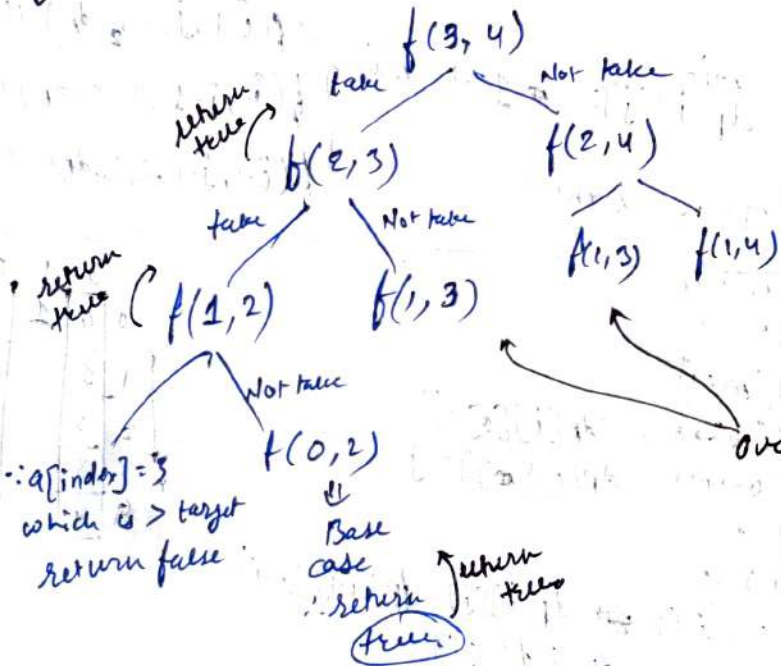 f(3, 4)
take
Not take
return
true
f(2, 3)
f(2, 4)
take
Not take
return
true
f(1, 2)
f(1, 3)
f(1, 3)
f(1, 4)
Not take
∵ a[index] = 3
which is > target
return false
f(0, 2)
⇓
Base
case
∴ return
true
return
true